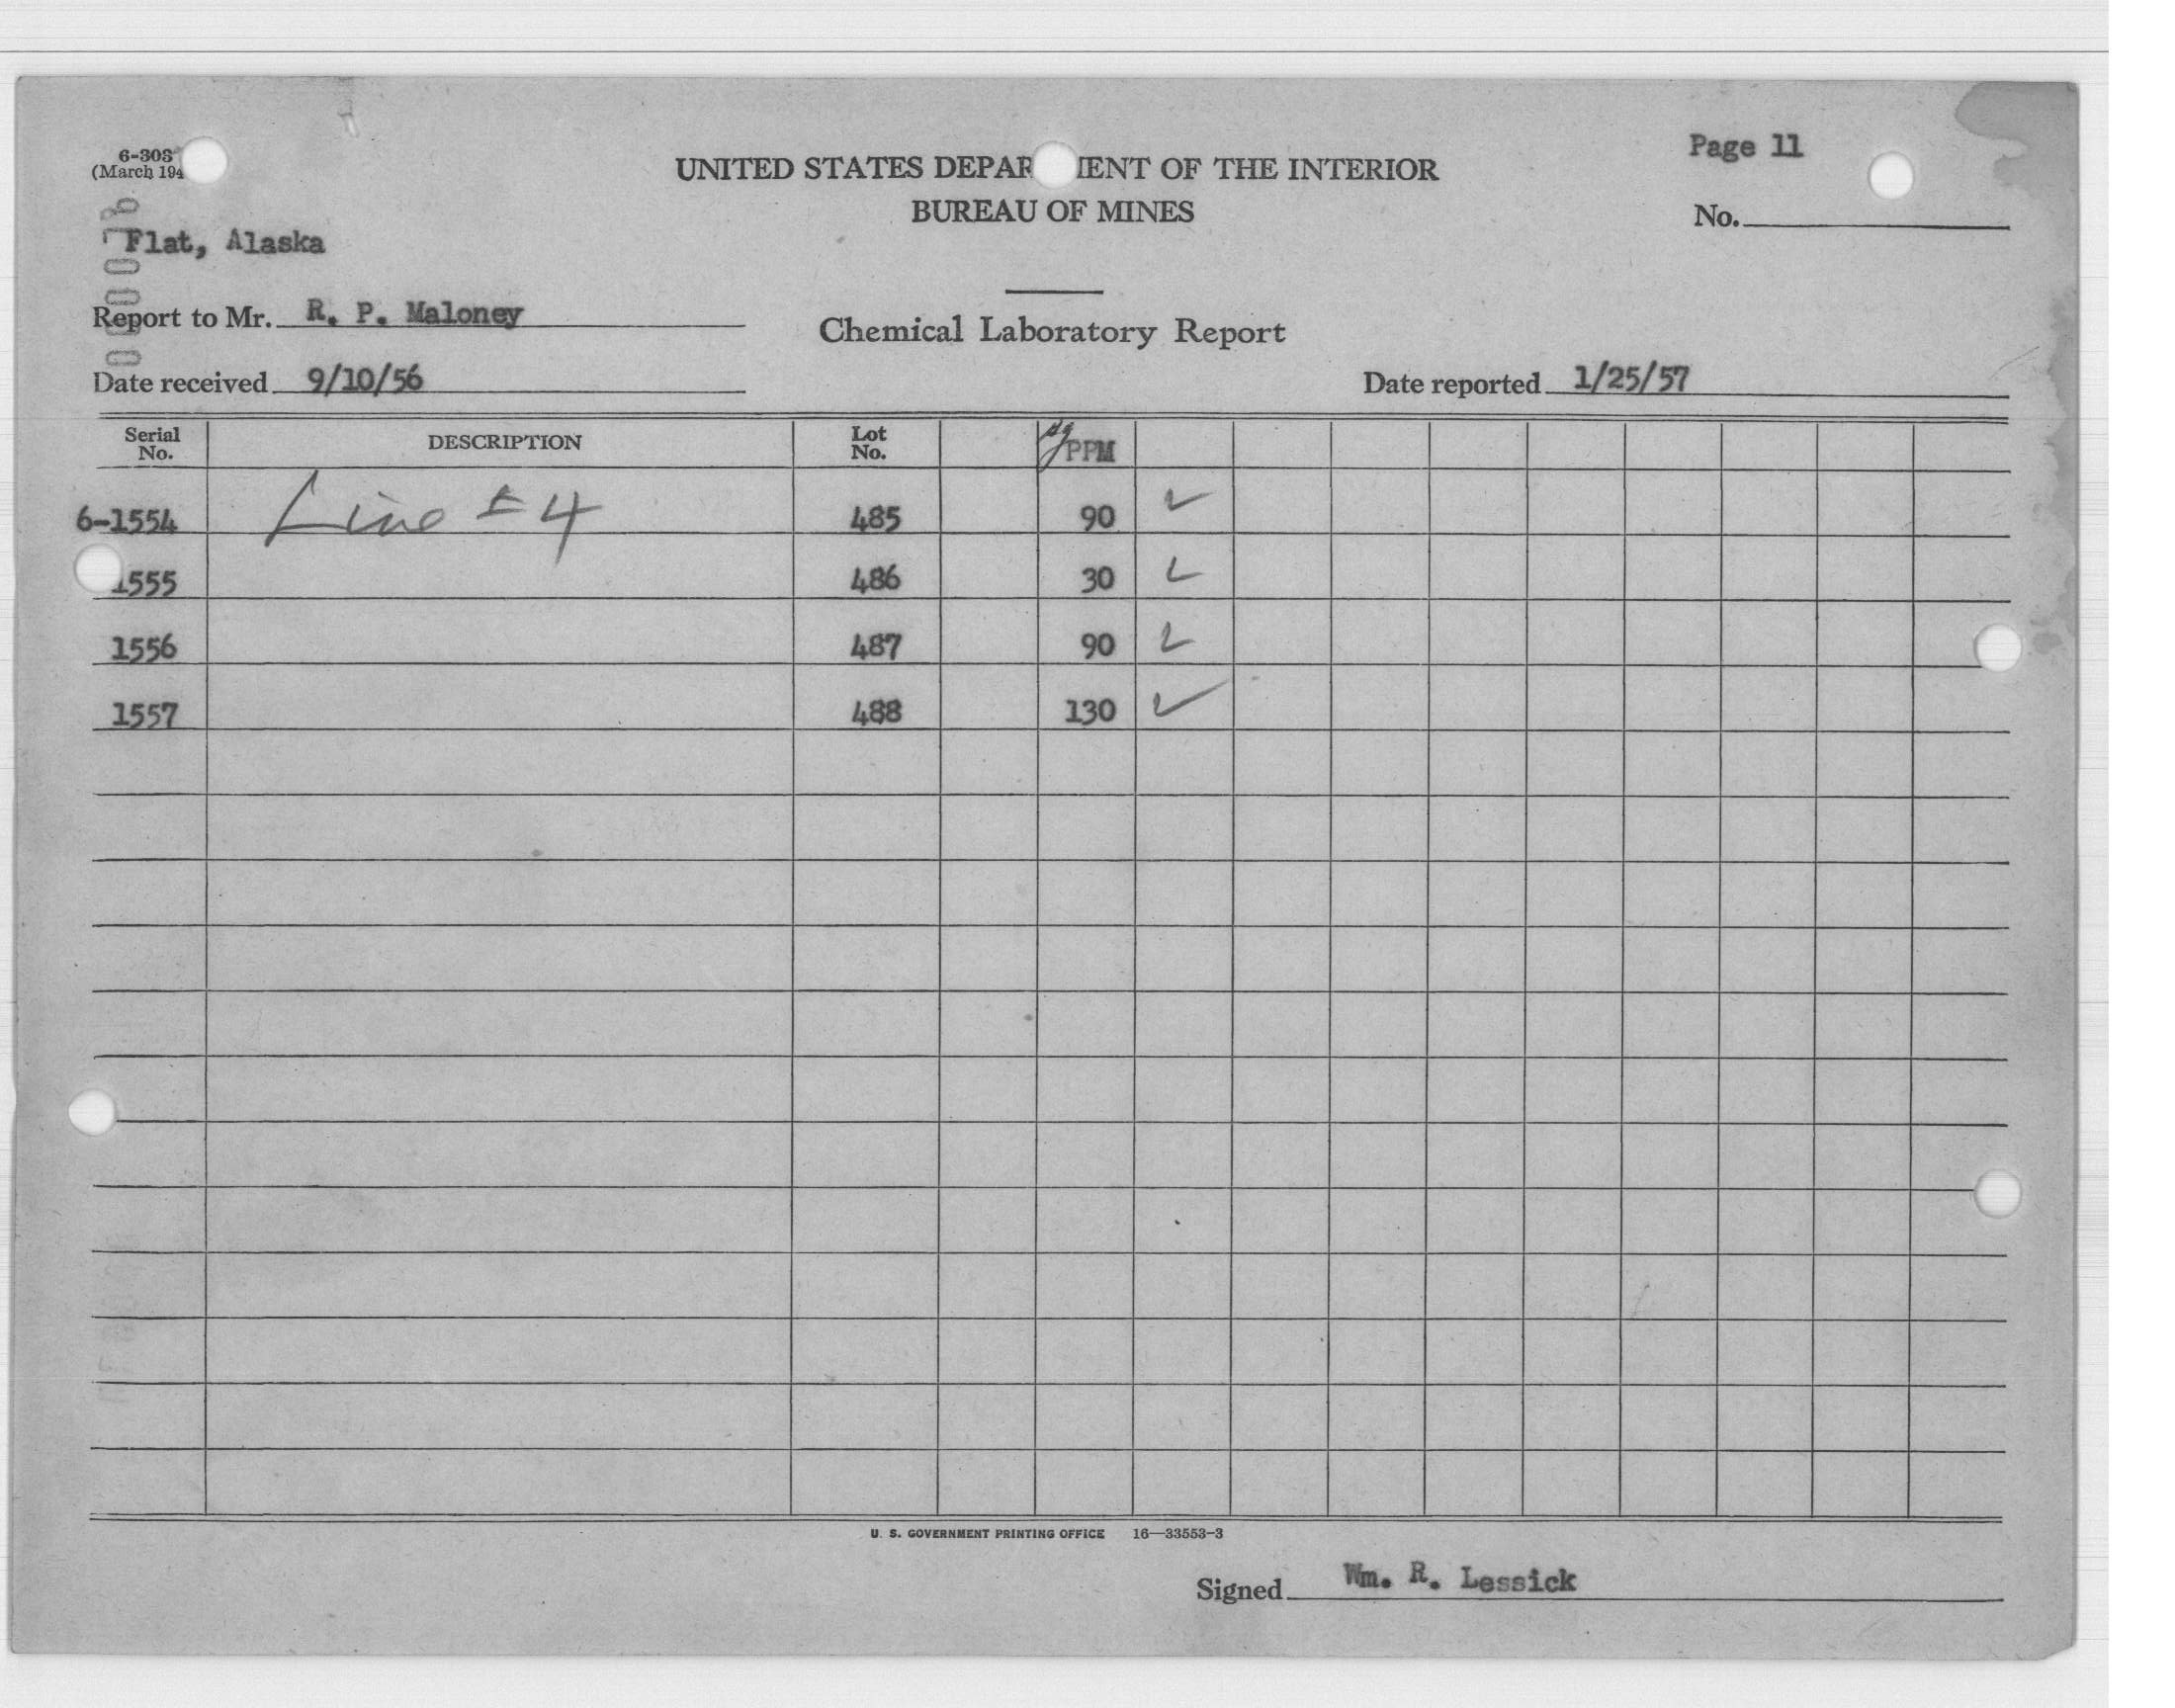 Page 11
6-303
(March 194
UNITED STATES DEPAR MENT OF THE INTERIOR
BUREAU OF MINES
No.
Flat, Alaska
Report to Mr. R. P. Maloney
Chemical Laboratory Report
Date received 9/10/56
Date reported 1/25/57
Serial No. DESCRIPTION Lot No. Hg PPM
6-1554 Line #4 485 90 ✓
1555 486 30 ✓
1556 487 90 ✓
1557 488 130 ✓
U. S. GOVERNMENT PRINTING OFFICE 16—33553-3
Signed Wm. R. Lessick